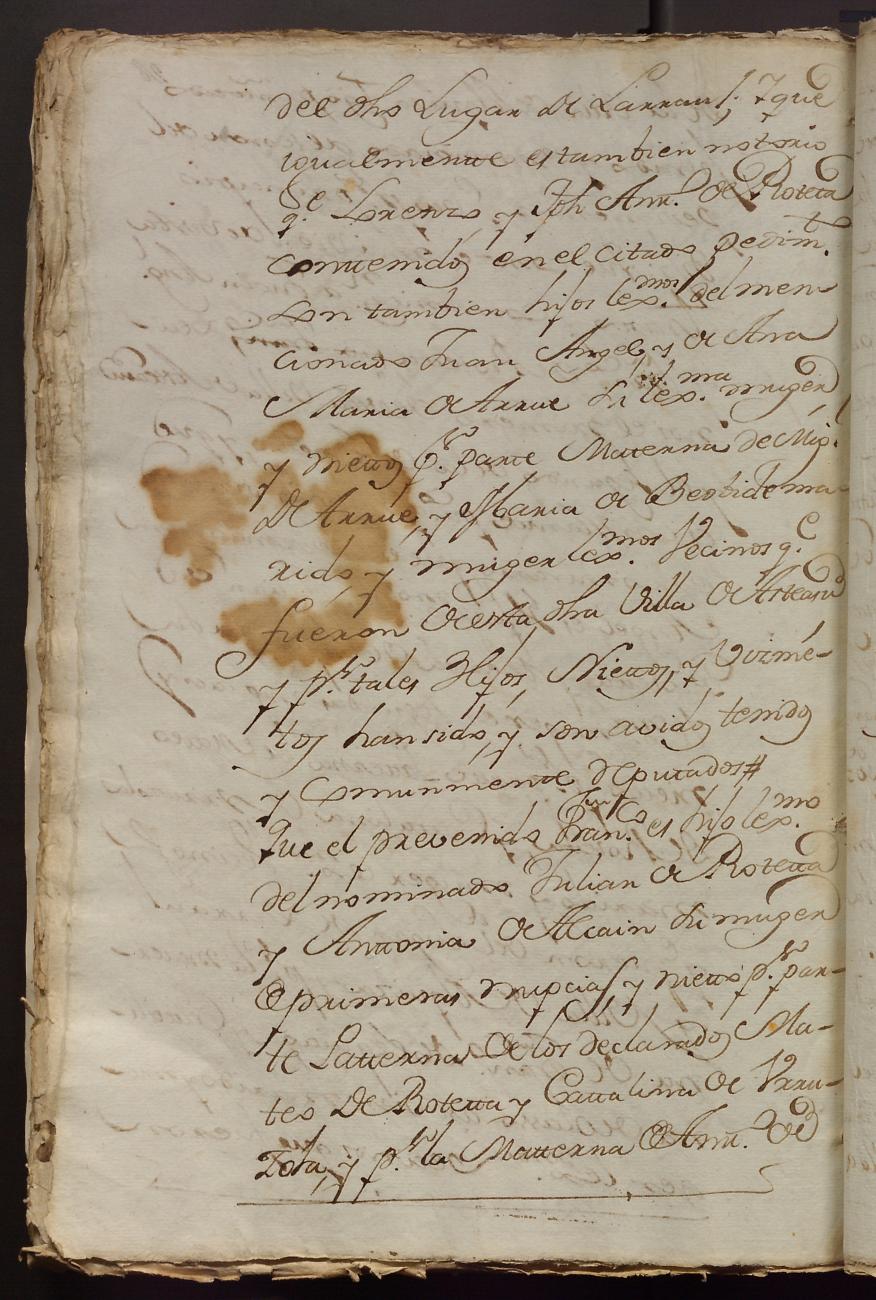 del dho Lugar de Larraul; Y que
igualmente es tambien notorio
q.e Lorenzo, y Jph Ant.o de Roteta
contenidos en el citado Pedim.to
son tambien hijos lex.mos del men-
cionado Juan Angel, y de Ana
Maria de Arrue su lex.ma muger
y nietos p.r parte Materna de Mig.l
De Arrue, y Maria de Beobide ma-
rido y muger lex.mos Vecinos q.e
fueron de esta dha Villa de Asteasu
y p.r tales Hijos, Nietos, y Viznie-
tos han sido, y son avidos tenidos
y Comunmente deputados #
Que el prevenido Fran.co es hijo lex.mo
del nominado Julian de Roteta
y Antonia de Alcain su muger
de primeras nupcias, y nieto p.r par-
te Paterna de los declarados Ma-
teo De Roteta y Cattalina de Urru-
zola, y p.r la Materna de Ant.o de